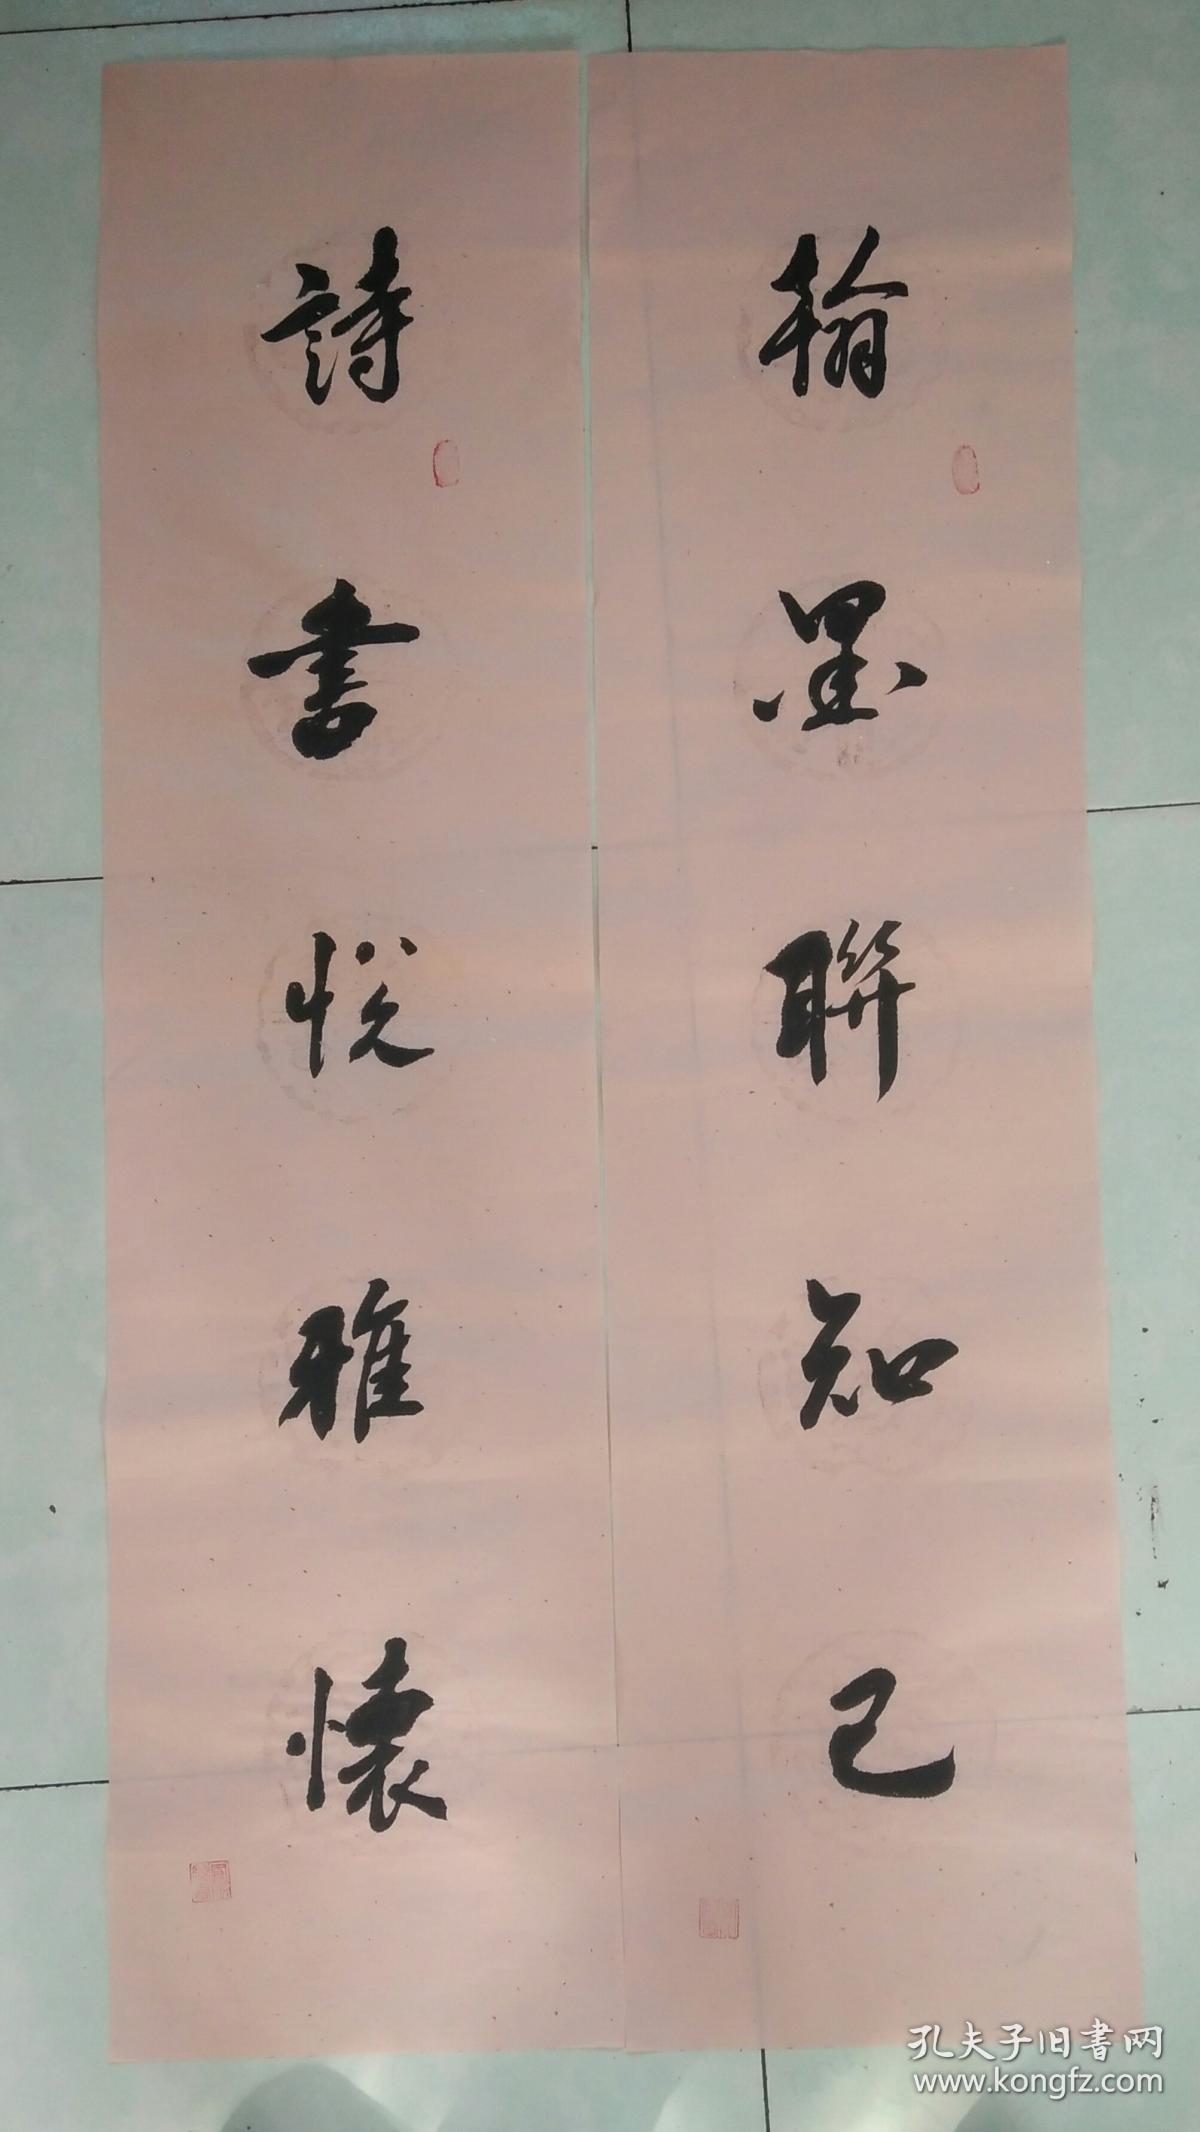 翰墨聯知己
詩書悦雅懷
孔夫子旧書网
www.kongfz.com